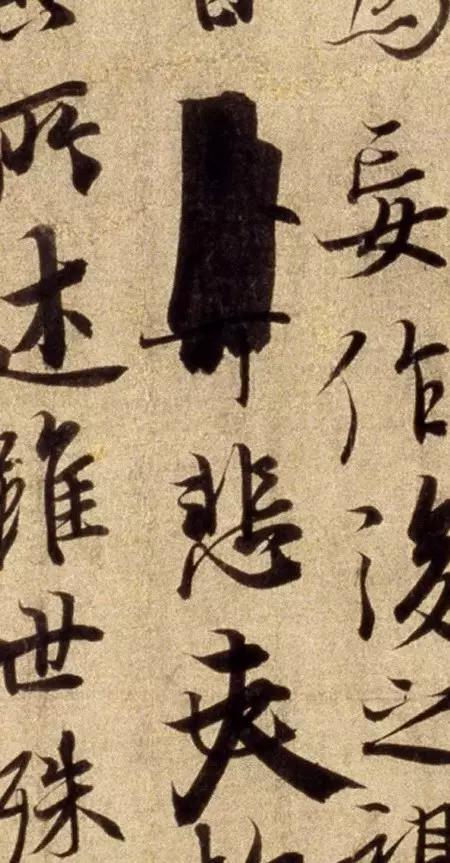 為妄作後之視
悲夫
所述雖世殊